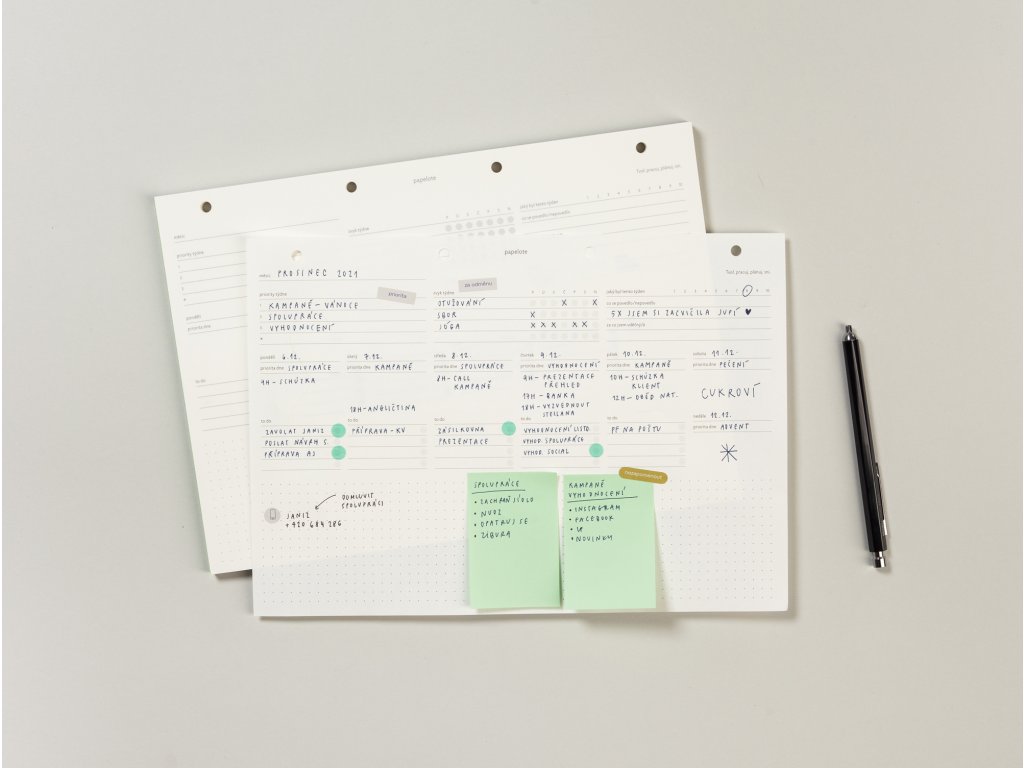 papelote
Tvoř, pracuj, plánuj, sni.
měsíc
jaký byl tento týden
1 2 3 4 5 6 7 8 9 10
zvyk týdne
P U S Č P S N
co se povedlo/nepovedlo
priority týdne
1
2
3
4
pondělí
priorita dne
to do
papelote
měsíc PROSINEC 2021
Tvoř, pracuj, plánuj, sni.
priority týdne
priorita
1 KAMPANĚ - VÁNOCE
2 SPOLUPRÁCE
3 VYHODNOCENÍ
4
zvyk týdne
za odměnu
P U S Č P S N
OTUŽOVÁNÍ X X
SBOR X
JÓGA X X X X X
jaký byl tento týden
1 2 3 4 5 6 7 8 9 10
co se povedlo/nepovedlo
5X JSEM SI ZACVIČILA JUPÍ ♥
za co jsem vděčný/á
pondělí 6.12.
priorita dne SPOLUPRÁCE
9H - SCHŮZKA
to do
ZAVOLAT JANIZ
POSLAT NÁVRH S.
PŘÍPRAVA AJ
úterý 7.12.
priorita dne KAMPANĚ
18H - ANGLIČTINA
to do
PŘÍPRAVA - KV
středa 8.12.
priorita dne SPOLUPRÁCE
8H - CALL
KAMPANĚ
to do
ZÁSILKOVNA
PREZENTACE
čtvrtek 9.12.
priorita dne VYHODNOCENÍ
9H - PREZENTACE
PŘEHLED
17H - BANKA
18H - VYZVEDNOUT
to do
VYHODNOCENÍ LISTO.
VYHOD. SPOLUPRÁCE
VYHOD. SOCIAL
pátek 10.12.
priorita dne KAMPANĚ
10H - SCHŮZKA
KLIENT
12H - OBĚD NAT.
to do
PF NA POŠTU
sobota 11.12.
priorita dne PEČENÍ
CUKROVÍ
neděle 12.12.
priorita dne ADVENT
DOMLUVIT
SPOLUPRÁCI
JANIZ
+420 684 286
SPOLUPRÁCE
• ZACHRAŇ JÍDLO
• NUOZ
• OPATRUJ SE
• ZIBURA
nezapomenout
KAMPANĚ
VYHODNOCENÍ
• INSTAGRAM
• FACEBOOK
• NOVINKY